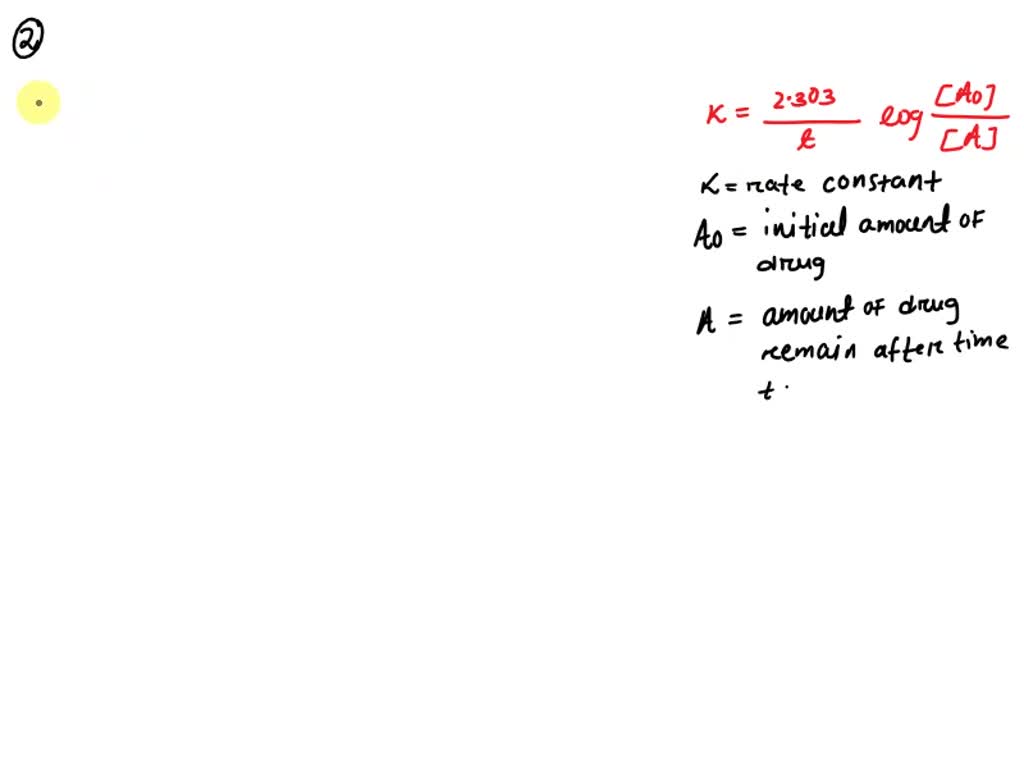 ②
K = 2.303 / t log [A0] / [A]
K = rate constant
A0 = initial amount of
drug
A = amount of drug
remain after time
t.